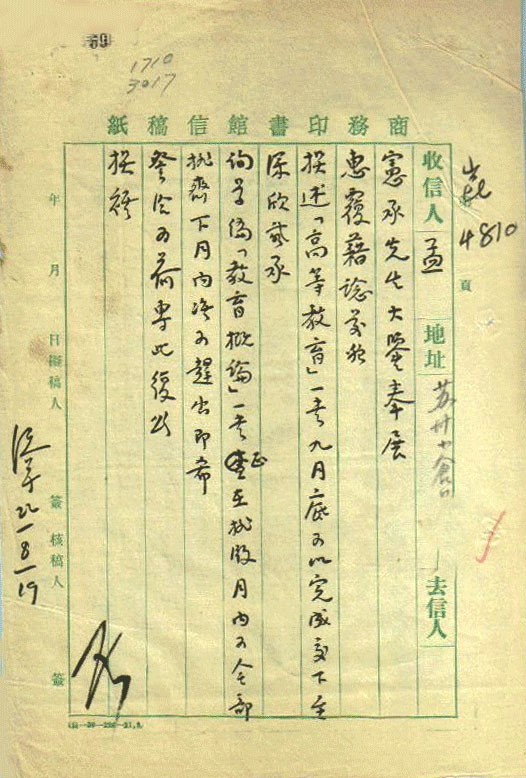 59
1710
3017
商務印書館信稿紙
4810
頁
收信人 孟 地址 苏州小倉口 去信人
憲承先生大鑒奉展
惠覆藉諗
撰述「高等教育」一書九月底可以完成交下至
深欣
「教育概論」一書 正在排版月內可全部
排齊下月內準可趕出即希
詧洽為荷專此復頌
撰祺
年 月 日擬稿人 簽 核稿人 簽
21-8-19